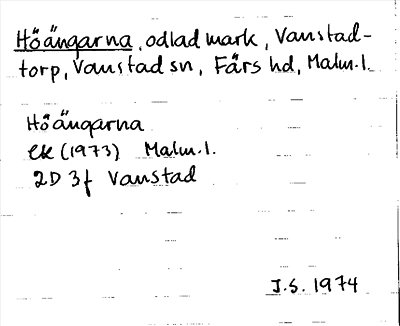 Höängarna, odlad mark, Vanstad-
torp, Vanstad sn, Färs hd, Malm.l.
Höängarna
ek (1973) Malm.l.
2D 3f Vanstad
J.S. 1974